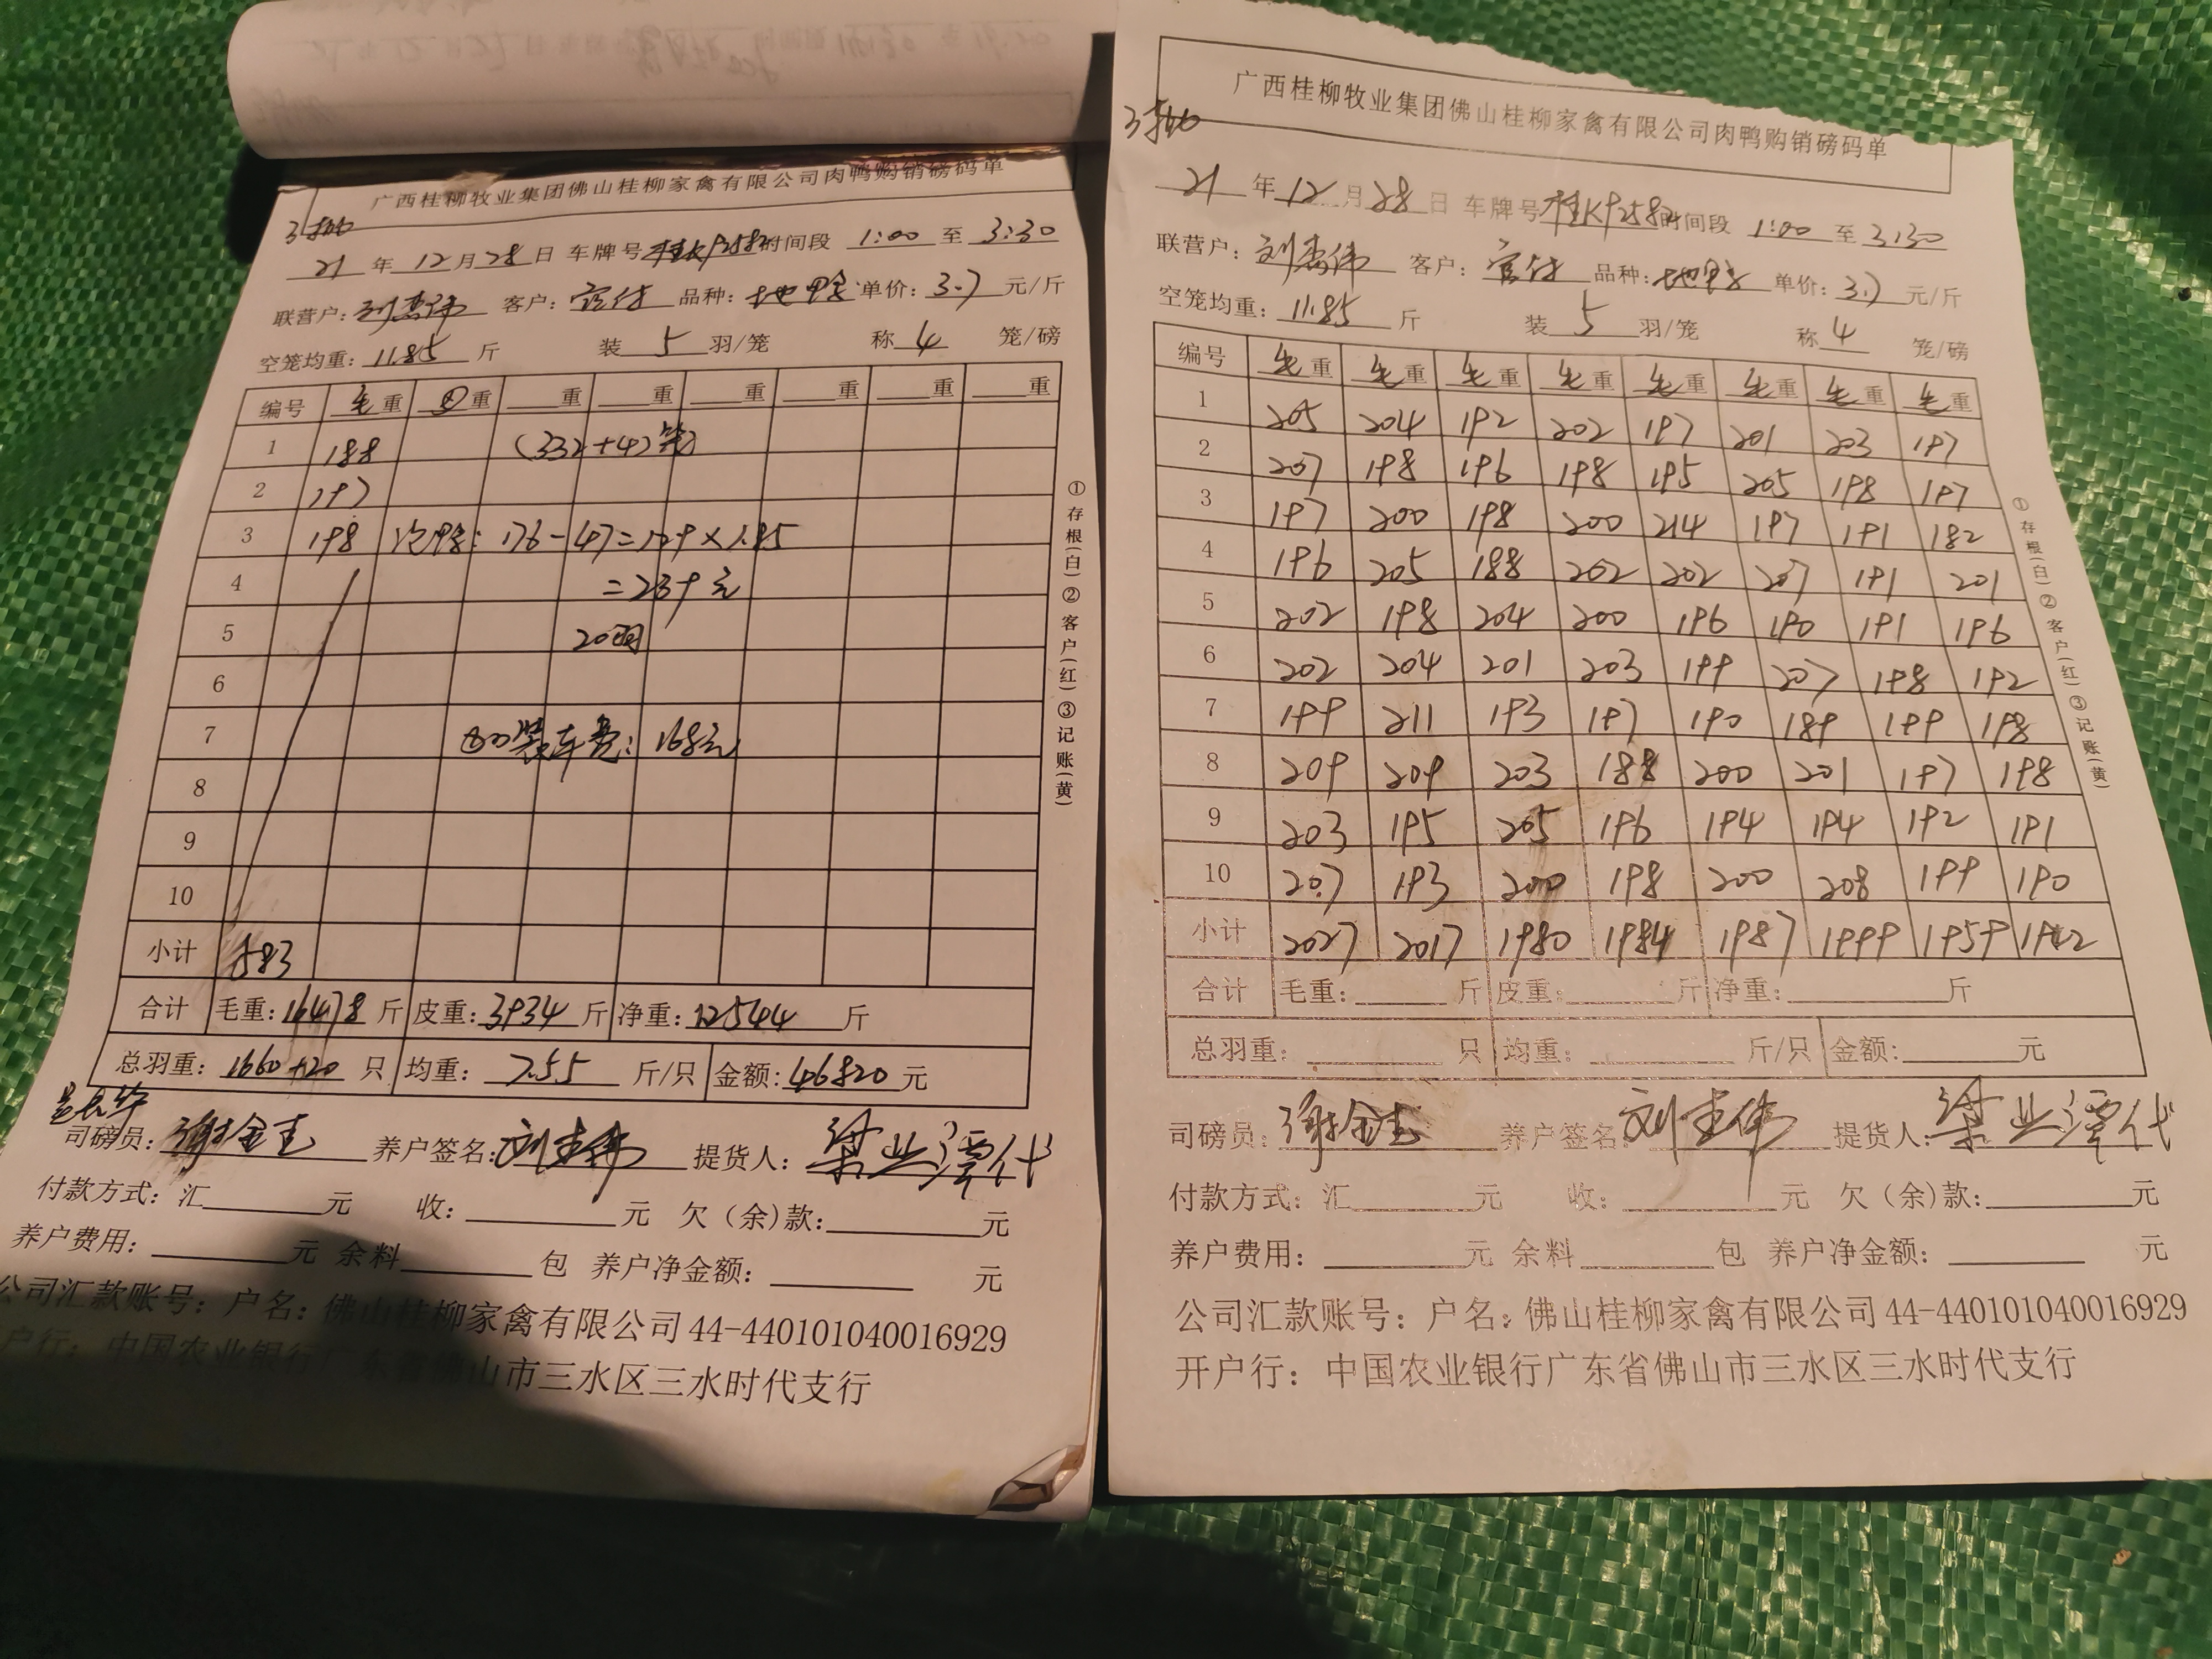 广西桂柳牧业集团佛山桂柳家禽有限公司肉鸭购销磅码单
21 年 12 月 28 日 车牌号 桂KP2582 时间段 1:00 至 3:30
联营户: 客户: 品种: 单价: 3.7 元/斤
空笼均重: 11.85 斤 装 5 羽/笼 称 4 笼/磅
编号 毛重 重 重 重 重 重 重 重
1 188 (332+4)笼
2 197
3 198 176-47=129×1.85
4 =239元
5 20羽
6
7 装车费: 168元
8
9
10
小计 583
合计 毛重: 16478 斤 皮重: 3934 斤 净重: 12544 斤
总羽重: 1660+20 只 均重: 7.55 斤/只 金额: 46820 元
司磅员: 养户签名: 提货人:
付款方式: 汇 元 收: 元 欠（余)款: 元
养户费用: 元 余料 包 养户净金额: 元
公司汇款账号: 户名: 佛山桂柳家禽有限公司 44-440101040016929
户行: 中国农业银行广东省佛山市三水区三水时代支行
①存根(白)②客户(红)③记账(黄)
广西桂柳牧业集团佛山桂柳家禽有限公司肉鸭购销磅码单
21 年 12 月 28 日 车牌号 桂KP2582 时间段 1:00 至 3:30
联营户: 客户: 品种: 单价: 3.7 元/斤
空笼均重: 11.85 斤 装 5 羽/笼 称 4 笼/磅
编号 毛重 毛重 毛重 毛重 毛重 毛重 毛重 毛重
1 205 204 192 202 197 201 203 197
2 207 198 196 198 195 205 198 197
3 197 200 198 200 214 197 191 182
4 196 205 188 202 202 207 191 201
5 202 198 204 200 196 190 191 196
6 202 204 201 203 199 207 198 192
7 199 211 193 197 190 189 199 198
8 209 209 203 188 200 201 197 198
9 203 195 205 196 194 194 192 191
10 207 193 200 198 200 208 199 190
小计 2027 2017 1980 1984 1987 1999 1959 1942
合计 毛重: 斤 皮重: 斤 净重: 斤
总羽重: 只 均重: 斤/只 金额: 元
司磅员: 养户签名: 提货人:
付款方式: 汇 元 收: 元 欠（余)款: 元
养户费用: 元 余料 包 养户净金额: 元
公司汇款账号: 户名: 佛山桂柳家禽有限公司 44-440101040016929
开户行: 中国农业银行广东省佛山市三水区三水时代支行
①存根(白)②客户(红)③记账(黄)